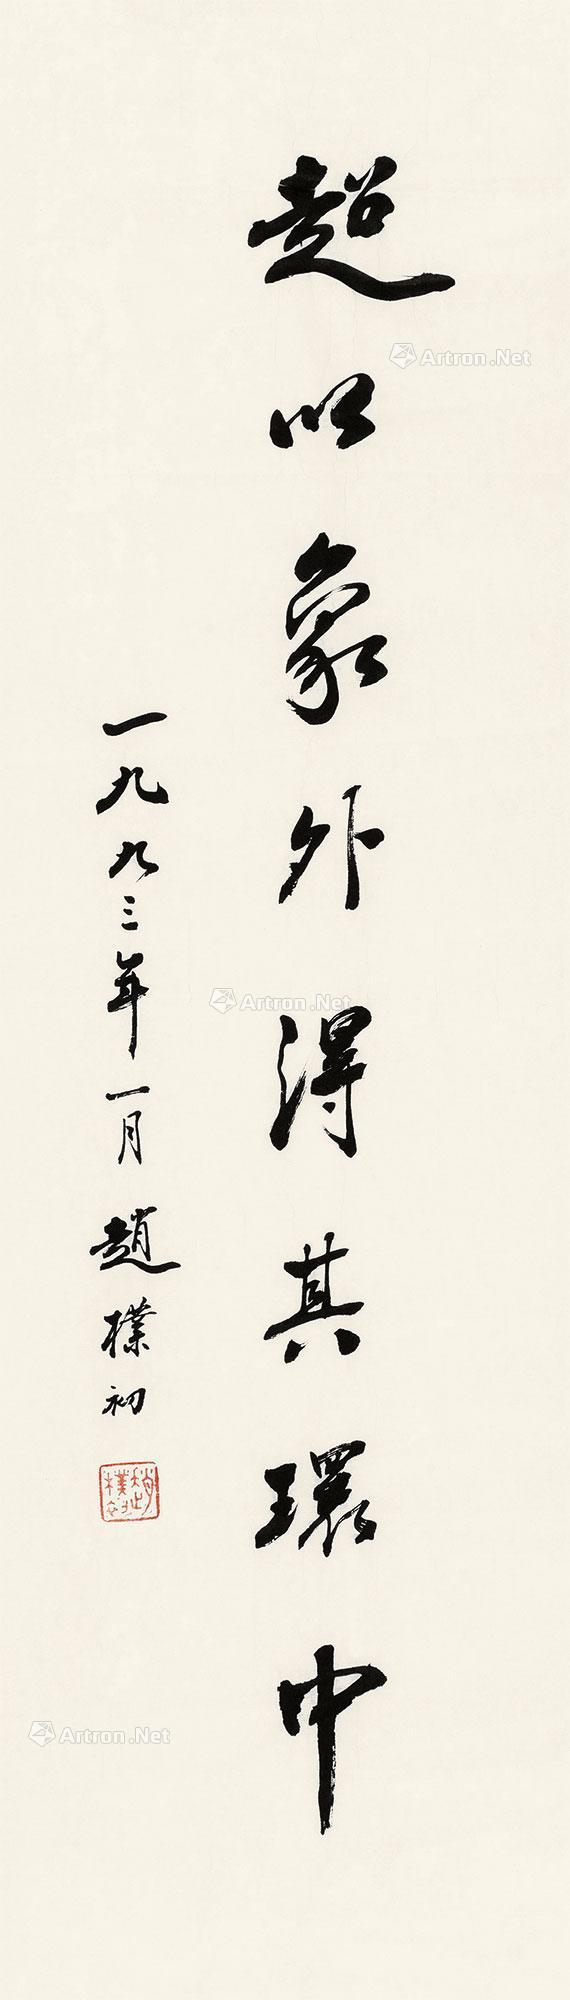 超以象外得其環中
一九九三年一月趙樸初
趙樸初
Artron.Net
Artron.Net
Artron.Net